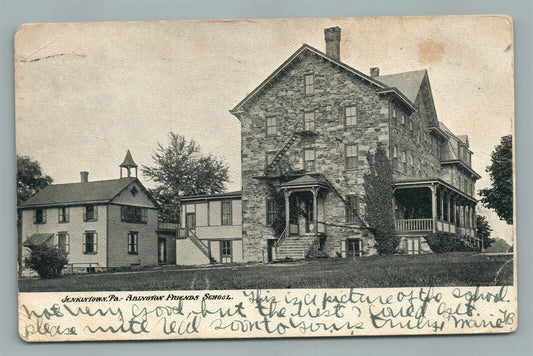 JENKINTOWN, PA.- ABINGTON FRIENDS SCHOOL. This is a picture of the school.
not very good, but the best I could get.
please write real soon to yours truly Marie